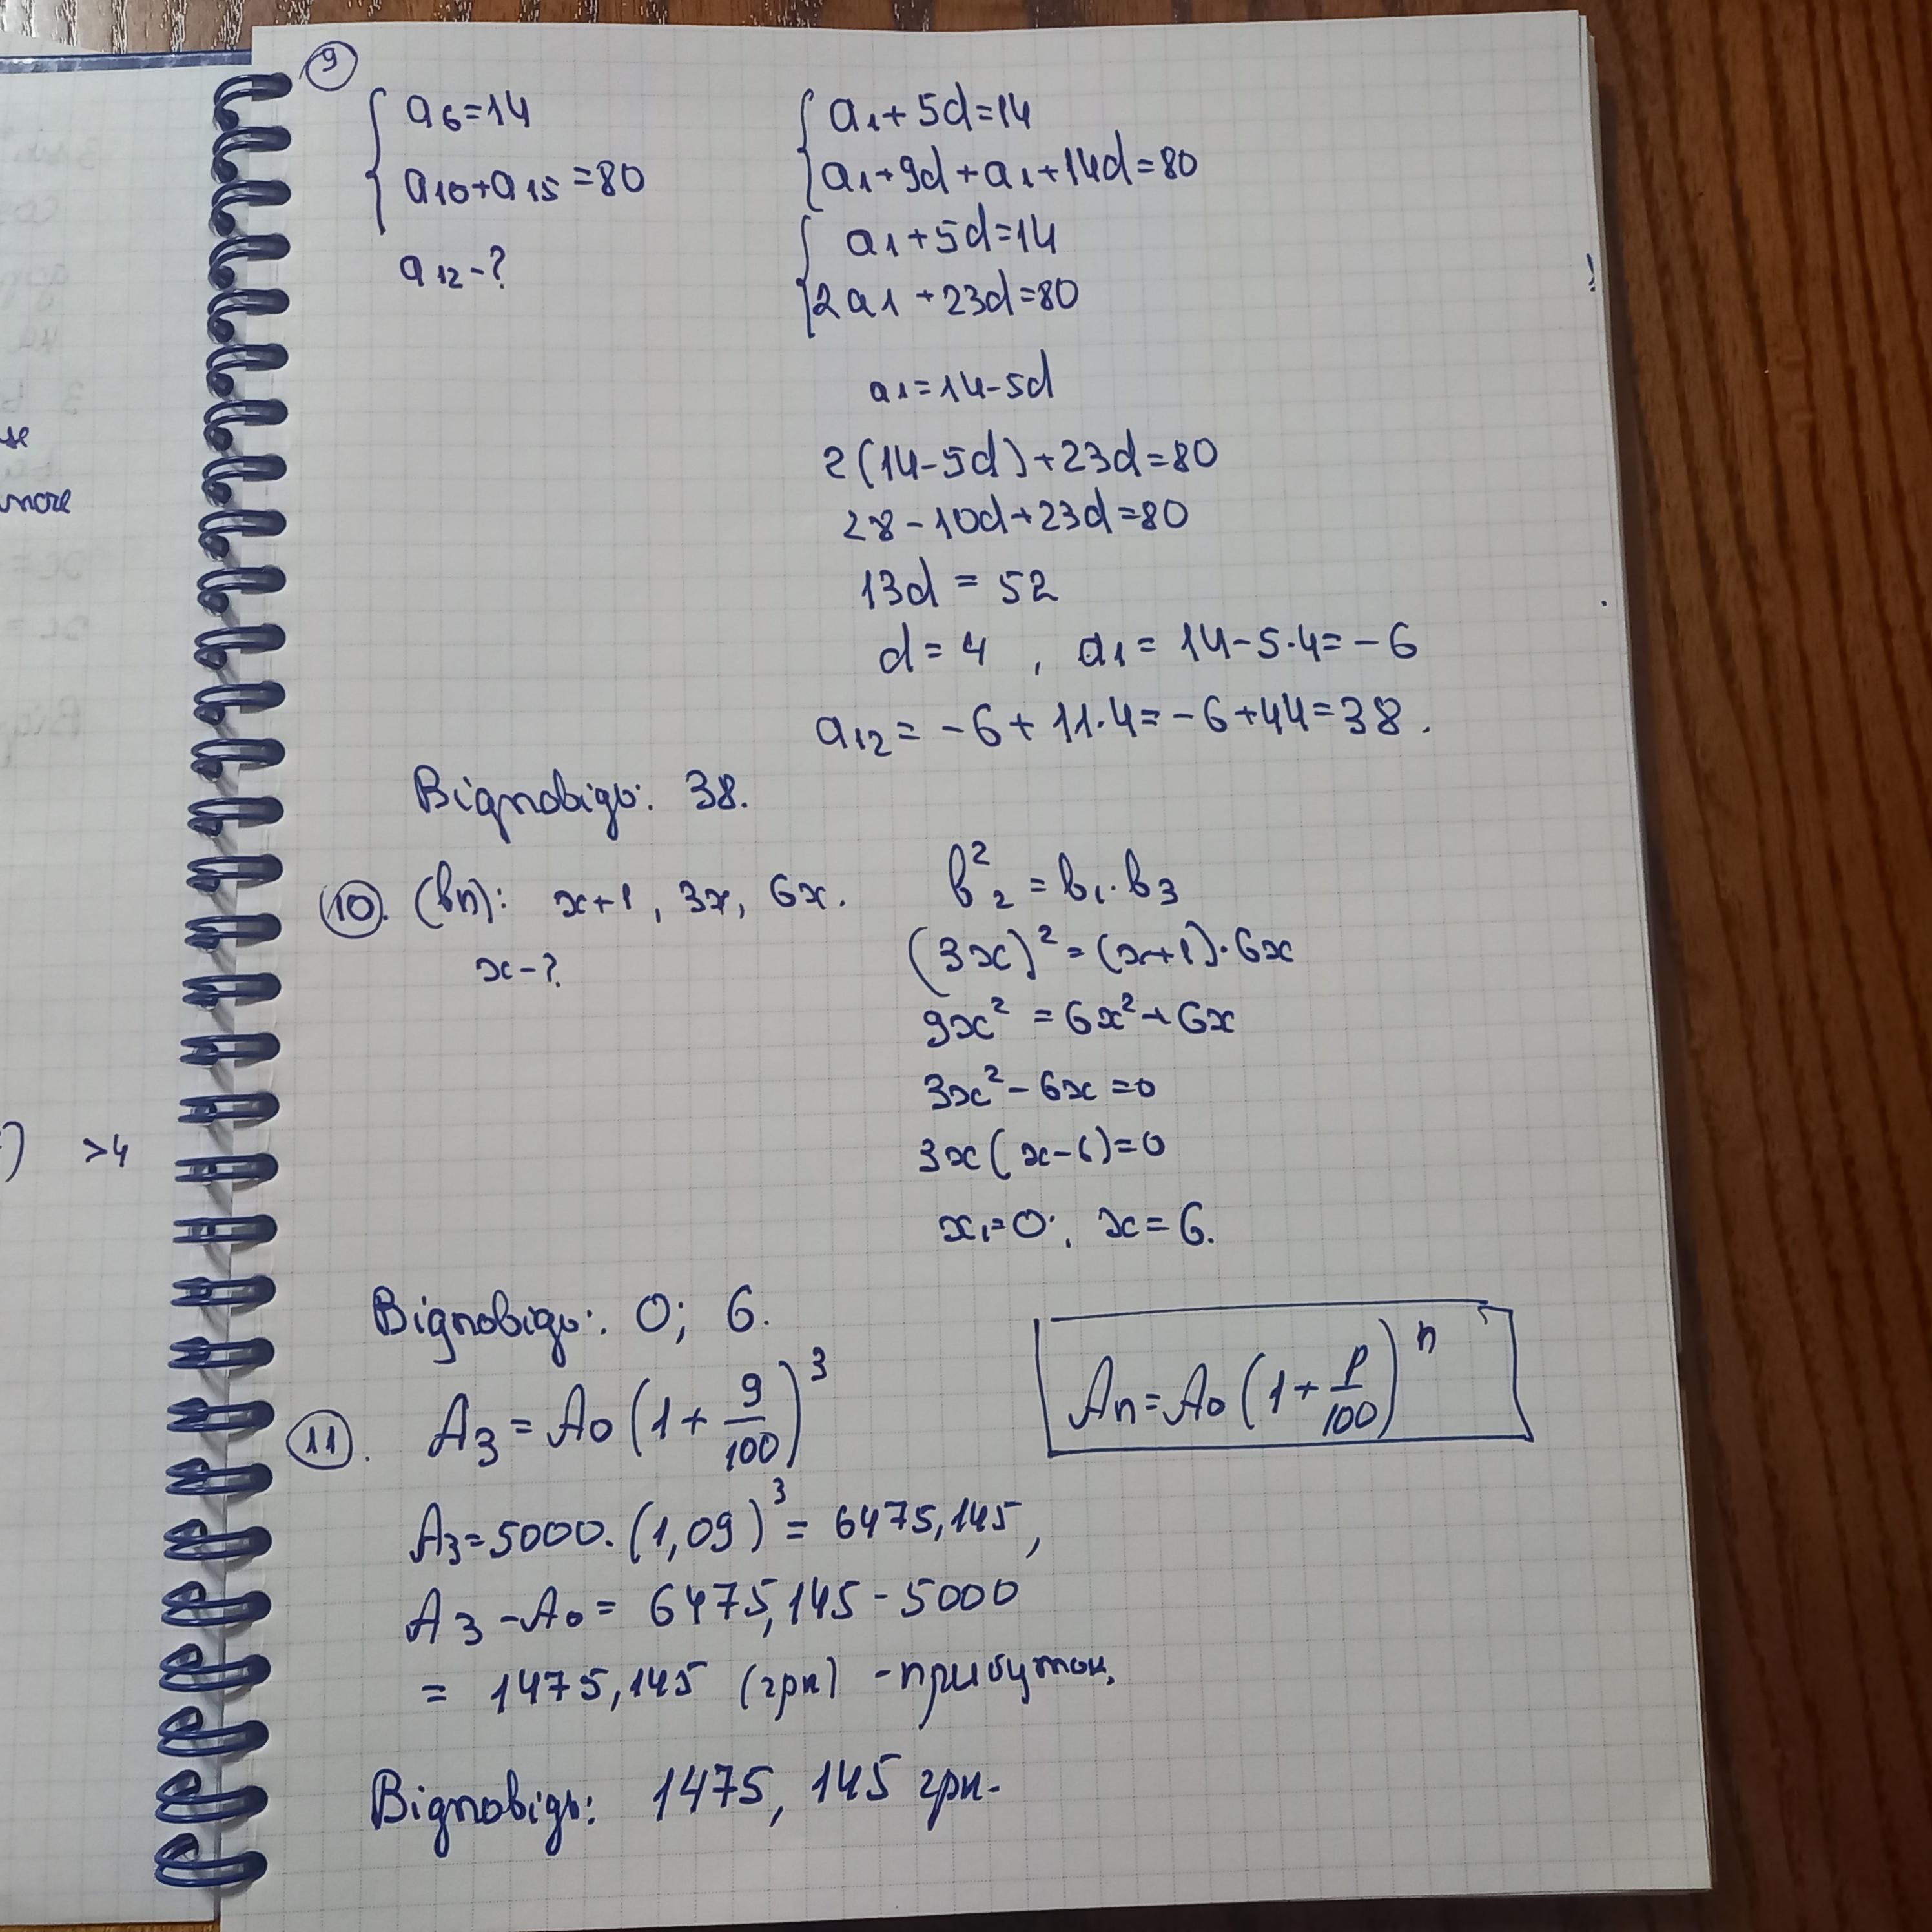 9
a₆=14
a₁₀+a₁₅=80
a₁₂-?
a₁+5d=14
a₁+9d+a₁+14d=80
a₁+5d=14
2a₁+23d=80
a₁=14-5d
2(14-5d)+23d=80
28-10d+23d=80
13d=52
d=4, a₁=14-5·4=-6
a₁₂=-6+11·4=-6+44=38.
Відповідь: 38.
10. (bn): x+1, 3x, 6x.
x-?
b₂²=b₁·b₃
(3x)²=(x+1)·6x
9x²=6x²+6x
3x²-6x=0
3x(x-6)=0
x₁=0; x=6.
Відповідь: 0; 6.
11. A₃=A₀(1+9/100)³
Aₙ=A₀(1+p/100)ⁿ
A₃=5000·(1,09)³=6475,145,
A₃-A₀=6475,145-5000
=1475,145 (грн) -прибуток.
Відповідь: 1475,145 грн.
>4